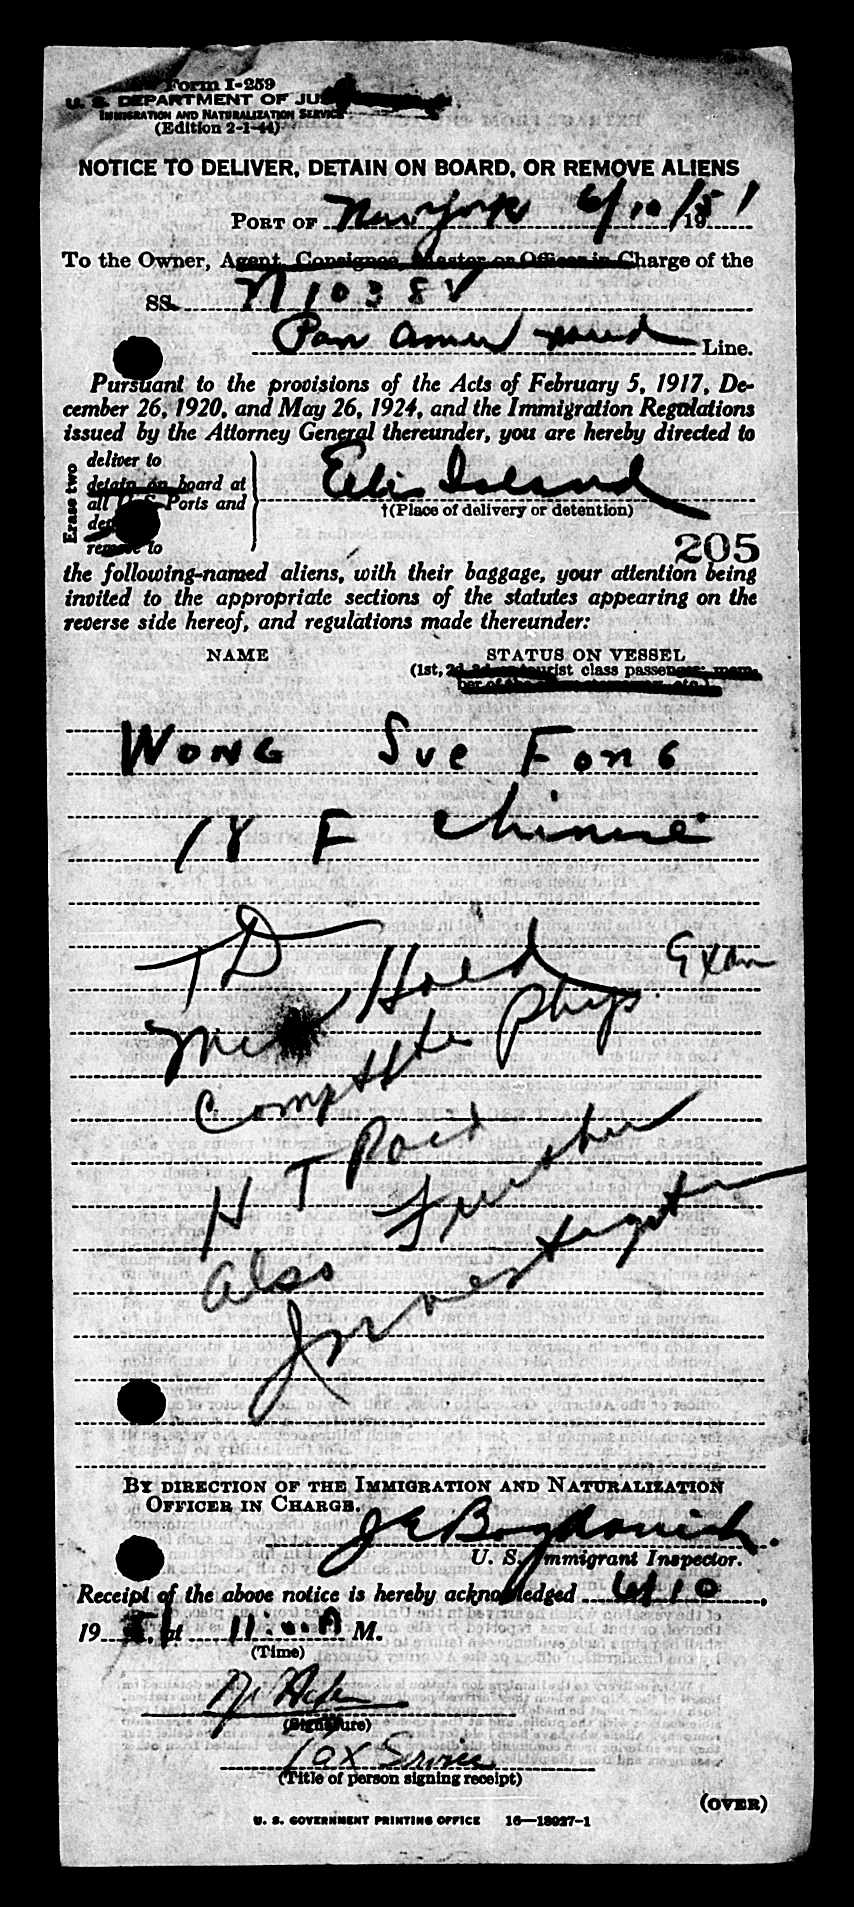 Form I-259
U. S. DEPARTMENT OF JUS
IMMIGRATION AND NATURALIZATION SERVICE
(Edition 2-1-44)
NOTICE TO DELIVER, DETAIN ON BOARD, OR REMOVE ALIENS
PORT OF New York 6/10/51 19
To the Owner, Agent, Consignee, Master or Officer in Charge of the
SS. N 1038V
Pan Amer Line.
Pursuant to the provisions of the Acts of February 5, 1917, De-
cember 26, 1920, and May 26, 1924, and the Immigration Regulations
issued by the Attorney General thereunder, you are hereby directed to
Erase two
deliver to
detain on board at
all U. S. Ports and
remove to
Ellis Island
†(Place of delivery or detention)
205
the following-named aliens, with their baggage, your attention being
invited to the appropriate sections of the statutes appearing on the
reverse side hereof, and regulations made thereunder:
NAME STATUS ON VESSEL
(1st, 2d, 3d or tourist class passenger, mem-
ber of the crew, stowaway, etc.)
WONG Sue Fong
18 F Chinese
TD
Hold Exam
Complete Phys.
H T Paid
Also Further
Investigation
BY DIRECTION OF THE IMMIGRATION AND NATURALIZATION
OFFICER IN CHARGE.
J E Bogdanich.
U. S. Immigrant Inspector.
Receipt of the above notice is hereby acknowledged 6/10,
19 51, at 11 A M.
(Time)
(Signature)
Pax Service
(Title of person signing receipt)
(OVER)
U. S. GOVERNMENT PRINTING OFFICE 16—18927-1